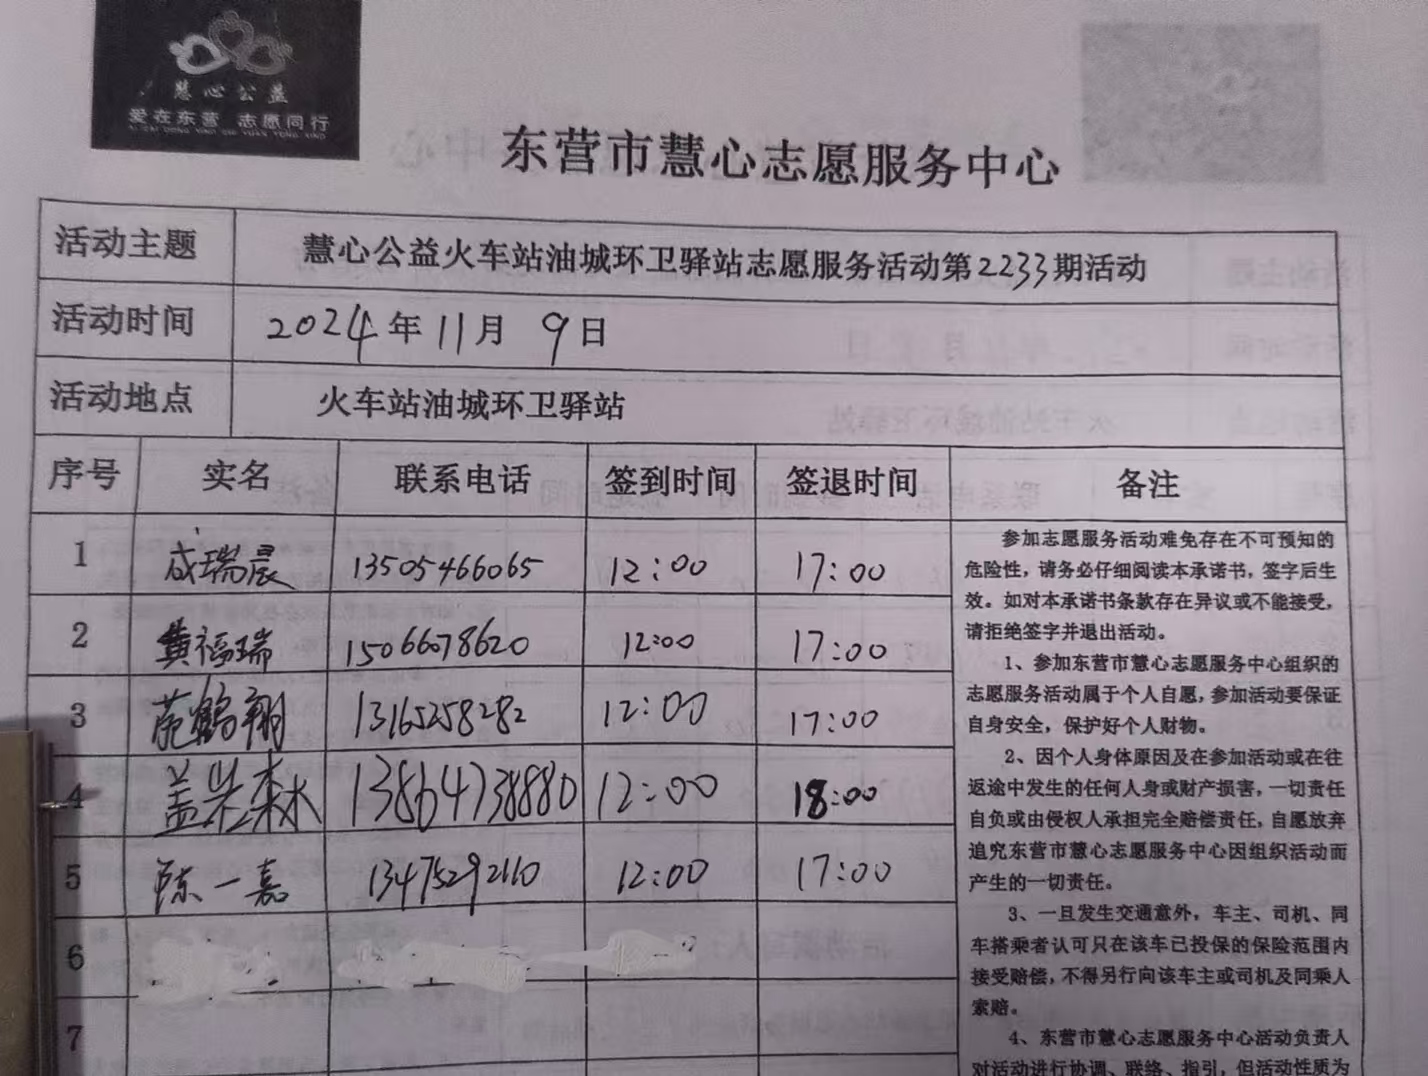 慧心公益
爱在东营 志愿同行
AI ZAI DONG YING ZHI YUAN TONG XING
东营市慧心志愿服务中心
活动主题 慧心公益火车站油城环卫驿站志愿服务活动第2233期活动
活动时间 2024年11月9日
活动地点 火车站油城环卫驿站
序号 实名 联系电话 签到时间 签退时间 备注
1 成瑞晨 13505466065 12:00 17:00
2 黄福瑞 15066678620 12:00 17:00
3 范鹤翔 13165258282 12:00 17:00
4 盖 森 13864738880 12:00 18:00
5 陈一嘉 13475292110 12:00 17:00
6
7
参加志愿服务活动难免存在不可预知的
危险性，请务必仔细阅读本承诺书，签字后生
效。如对本承诺书条款存在异议或不能接受，
请拒绝签字并退出活动。
1、参加东营市慧心志愿服务中心组织的
志愿服务活动属于个人自愿，参加活动要保证
自身安全，保护好个人财物。
2、因个人身体原因及在参加活动或在往
返途中发生的任何人身或财产损害，一切责任
自负或由侵权人承担完全赔偿责任，自愿放弃
追究东营市慧心志愿服务中心因组织活动而
产生的一切责任。
3、一旦发生交通意外，车主、司机、同
车搭乘者认可只在该车已投保的保险范围内
接受赔偿，不得另行向该车主或司机及同乘人
索赔。
4、东营市慧心志愿服务中心活动负责人
对活动进行协调、联络、指引，但活动性质为